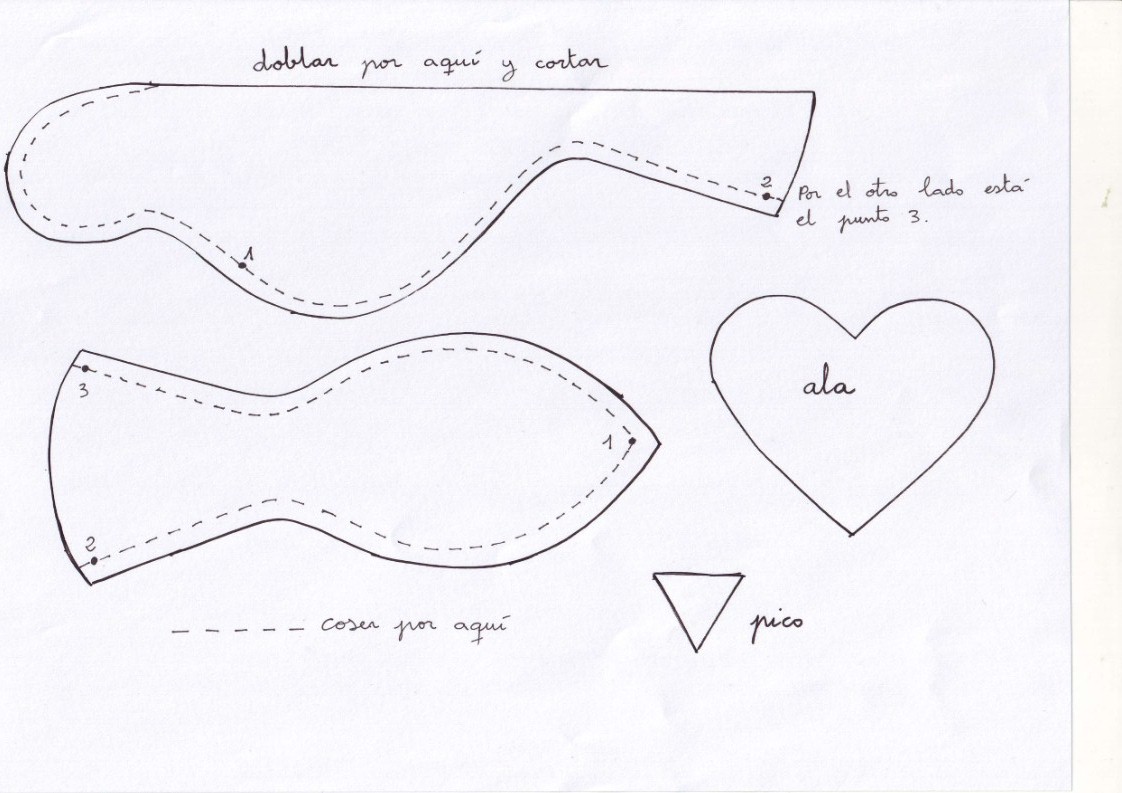 doblar por aquí y cortar
1
2
Por el otro lado está
el punto 3.
3
1
ala
2
coser por aquí
pico